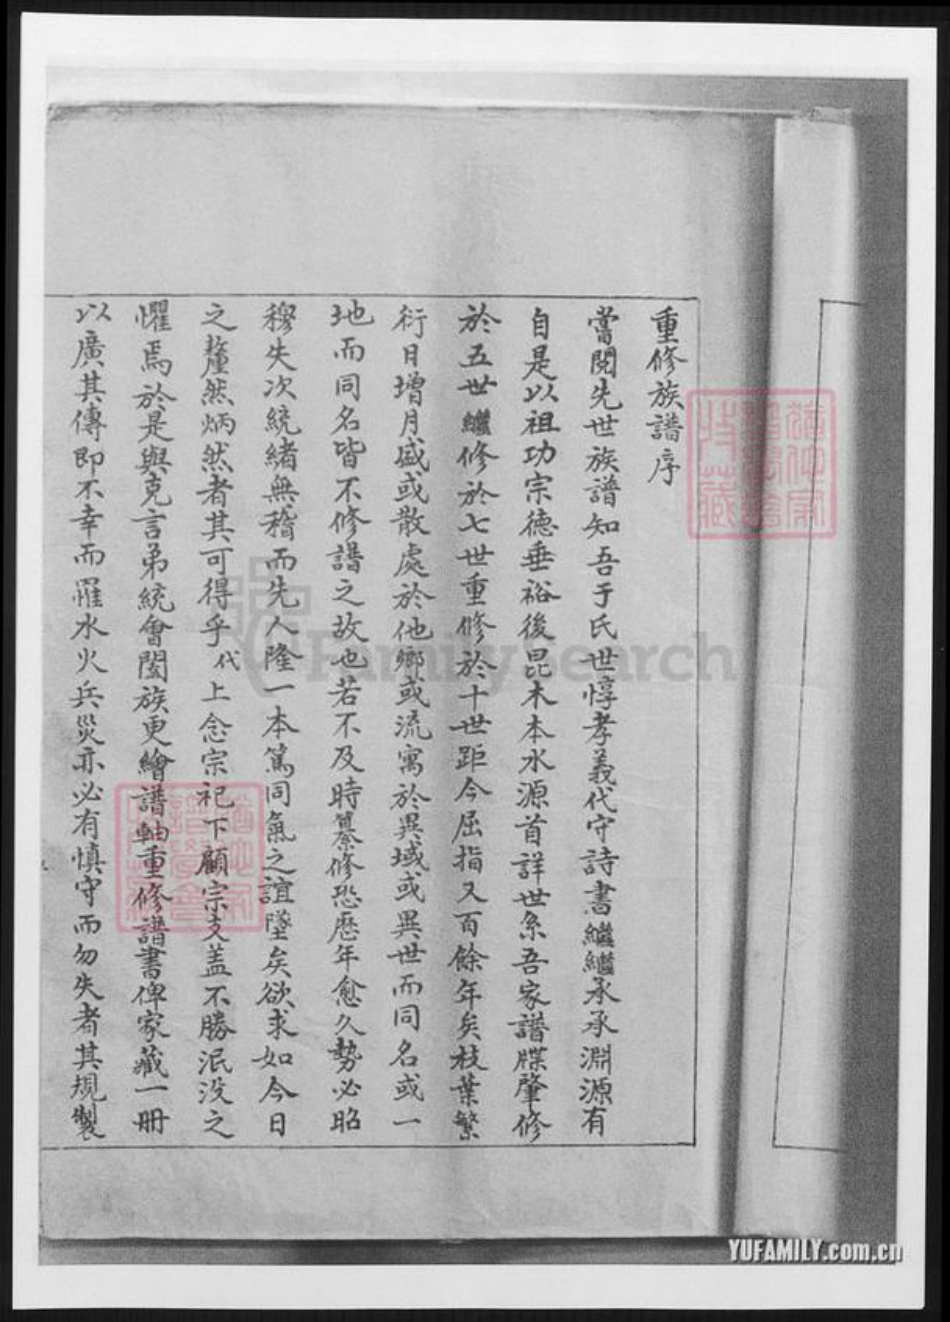 重修族譜序
嘗閱先世族譜知吾于氏世惇孝義代守詩書繼繼承承淵源有
自是以祖功宗德垂裕後昆木本水源首詳世系吾家譜牒肇修
於五世繼修於七世重修於十世距今屈指又百餘年矣枝葉繁
衍日增月盛或散處於他鄉或流寓於異域或異世而同名或一
地而同名皆不修譜之故也若不及時纂修恐歷年愈久勢必昭
穆失次統緒無稽而先人隆一本篤同氣之誼墜矣欲求如今日
之釐然炳然者其可得乎代上念宗祀下顧宗支蓋不勝泯没之
懼焉於是與克言弟統會闔族更繪譜軸重修譜書俾家藏一冊
以廣其傳即不幸而罹水火兵災亦必有慎守而勿失者其規製
FamilySearch
YUFAMILY.com.cn